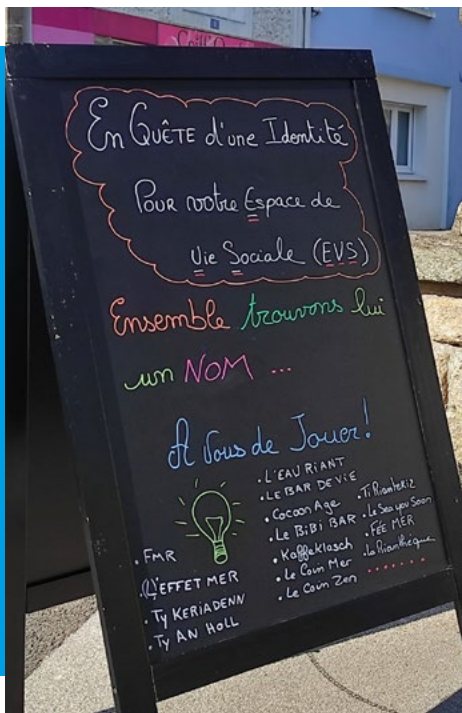 En Quête d'une Identité
Pour votre Espace de
Vie Sociale (EVS)
Ensemble trouvons lui
un NOM ...
A Vous de Jouer!
. FMR
. (L')EFFET MER
. Ty KERIADENN
. Ty AN HOLL
. L'EAU RIANT
. LE BAR DE VIE
. Cocoon Age
. Le BiBi BAR
. Kaffeklasch
. Le Coin Mer
. Le Coin Zen
. Ti Riantekiz
. Le Sea you Soon
. FÉE MER
. La Rianthèque
. . . . . . .